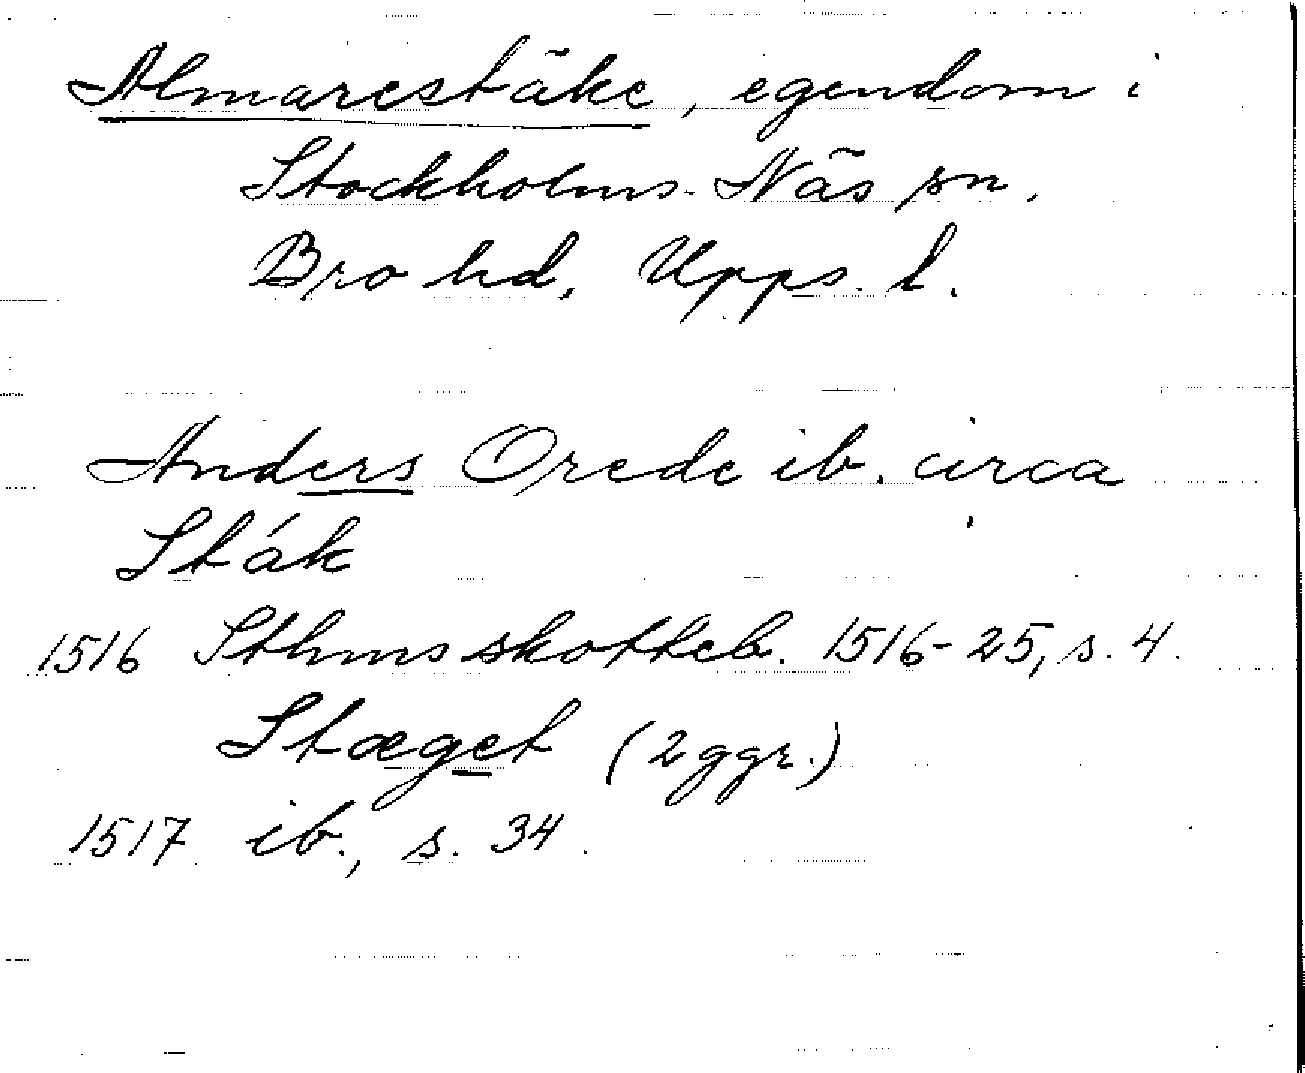 Almarestäke, egendom i
Stockholms-Näs sn.
Bro hd, Upps. l.
Anders Orede ib. circa
Sták
1516 Sthms skotteb. 1516-25, s. 4.
Stæget (2 ggr.)
1517 ib., s. 34.